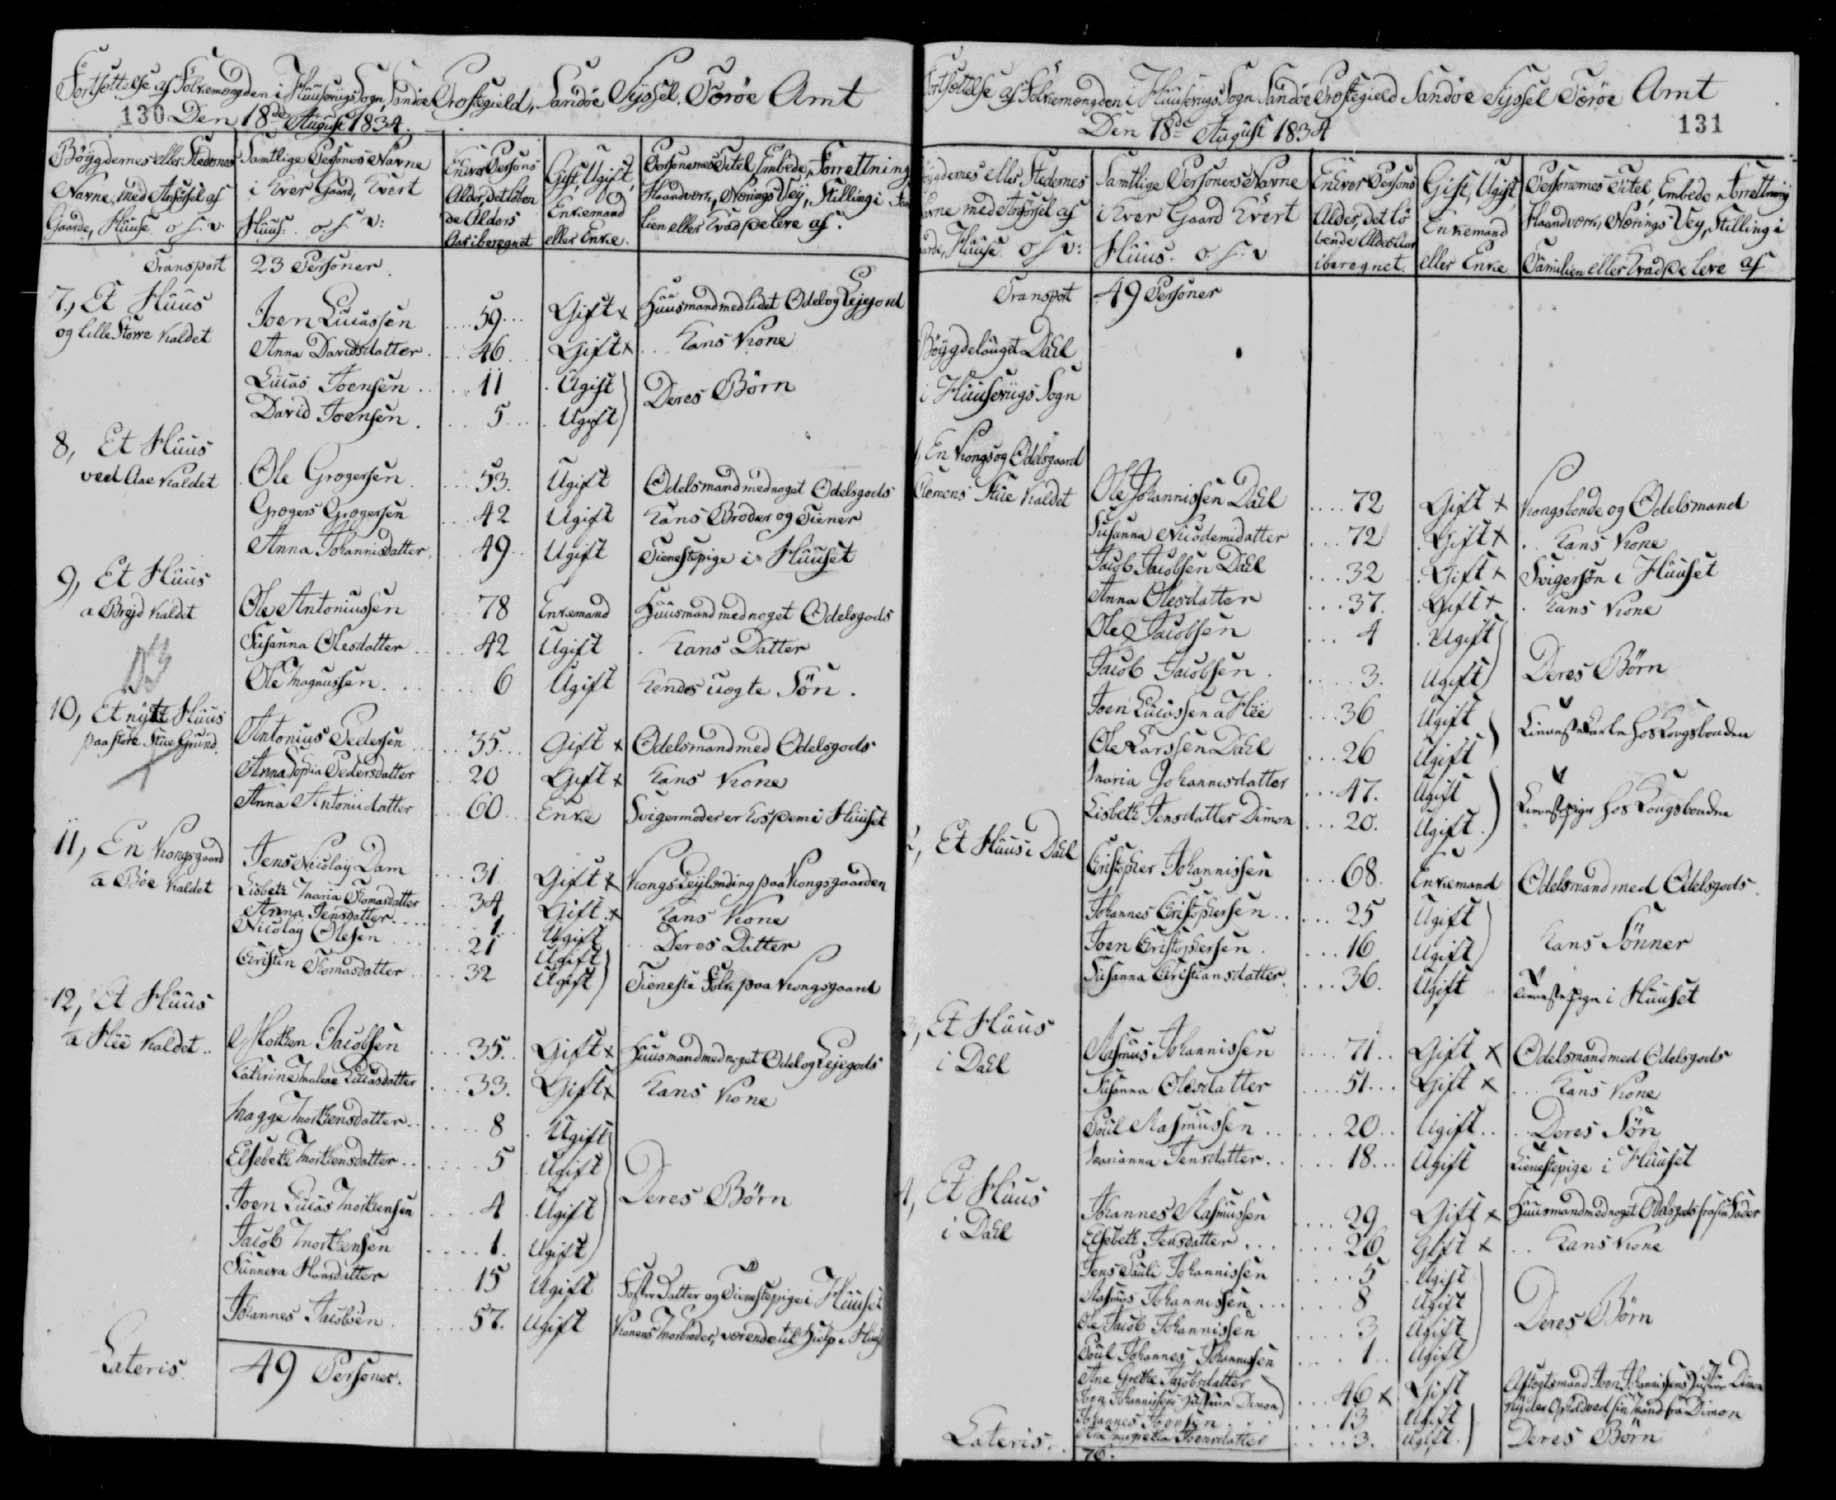 Fortsættelse af Folkemængden i Huusevigs Sogn, Sandøe Præstegield, Sandøe Syssel, Færøe Amt
130 Den 18de August 1834.
Bøygdernes eller Stedernes Navne, med Anførsel af Gaarde, Huuse o.s.v.
Samtlige Personers Navne i hver Gaard, hvert Huus. o.s.v:
Enhver Persons Alder, det løbende Alders Aar iberegnet
Gift, Ugift, Enkemand eller Enke.
Personernes Titel, Embede, Forretning Haandverk, Nærings Vey, Stilling i Familien eller hvad de leve af.
Transport 23 Personer.
7, Et Huus Joen Lucassen 59 Gift x Huusmand med lidet Odel og Lejejord
og lille Større kaldet Anna Davidsdatter 46 Gift x hans Kone
Lucas Joensen 11 Ugift Deres Børn
David Joensen 5 Ugift
8, Et Huus
ved Aae kaldet Ole Grøgersen 53. Ugift Odelsmand med noget Odelsgods
Grøgers Grøgersen 42 Ugift hans Broder og Tiener
Anna Johannisdatter 49 Ugift Tienestepige i Huuset
9, Et Huus
a Brejd kaldet Ole Antoniussen 78 Enkemand Huusmand med noget Odelsgods
Susanna Olesdatter 42 Ugift hans Datter
Ole Magnussen 6 Ugift hendes uægte Søn.
10, Et nytt Huus
paa store Stue Grund. Antonius Pedersen 35 Gift x Odelsmand med Odelsgods
Anna Sopia Pedersdatter 20 Gift x hans Kone
Anna Antoniidatter 60 Enke Svigermoder er hos dem i Huuset
11, En Kongsgaard Jens Nicolay Dam 31 Gift x Kongs Leylending paa Kongsgaarden
a Bøe kaldet Lisbeth Maria Thomasdatter 34 Gift x hans Kone
Anna Jensdatter 1 Ugift Deres Datter
Nicolay Olesen 21 Ugift
Christin Thomasdatter 32 Ugift Tieneste Folk paa Kongsgaard
12, Et Huus
a Hee kaldet Morthen Jacobsen 35. Gift x Huusmand med noget Odel og Lejegods
Catrine Malene Lucasdatter 33. Gift x hans Kone
Magge Morthensdatter 8 Ugift
Elsebeth Morthensdatter 5 Ugift
Joen Lucas Morthensen 4 Ugift Deres Børn
Jacob Morthensen 1. Ugift
Sunneva Hansdatter 15 Ugift Foster Datter og Tienestepige i Huuset
Johannes Jacobsen 57. Ugift Konens Morbroder, værende til hielp i Huuset
Lateris. 49 Personer.
Fortsættelse af Folkemængden i Huusevigs Sogn Sandøe Præstegield Sandøe Syssel Færøe Amt
Den 18de August 1834
131
Bøygdernes eller Stedernes Navne med Anførsel af Gaarde, Huuse o s v:
Samtlige Personers Navne i hver Gaard hvert Huus. o.s.v
Enhver Persons Alder, det løbende Alders Aar iberegnet.
Gift, Ugift, Enkemand eller Enke
Personernes Titel, Embede, Forretning Haandverk, Nærings Vey, Stilling i Familien eller hvad de leve af
Transport 49 Personer
Bøygdelauget Dahl
i Huusevigs Sogn
1, En Kongs og Odelsgaard
Clemens Stue kaldet Ole Johannissen Dahl 72 Gift x Kongsbonde og Odelsmand
Susanna Nicodemidatter 72 Gift x hans Kone
Jacob Jacobsen Dahl 32 Gift x Svigersøn i Huuset
Anna Olesdatter 37. Gift x hans Kone
Ole Jacobsen 4 Ugift
Jacob Jacobsen 3. Ugift Deres Børn
Joen Lucassen a Hee 36 Ugift Tienestekarle hos Kongsbonden
Ole Larssen Dahl 26 Ugift
Maria Johannisdatter 47. Ugift Tienestepiger hos Kongsbonden
Lisbeth Jensdatter Dimon 20. Ugift
2, Et Huus i Dahl Christopher Johannissen 68. Enkemand Odelsmand med Odelsgods
Johannes Christophersen 25 Ugift
Joen Christophersen 16 Ugift hans Sønner
Susanna Christiansdatter 36. Ugift Tienestepige i Huuset
3, Et Huus
i Dahl Rasmus Johannissen 71 Gift x Odelsmand med Odelsgods
Susanna Olesdatter 51 Gift x hans Kone
Poul Rasmussen 20 Ugift Deres Søn
Marianna Jensdatter 18 Ugift Tienestepige i Huuset
4, Et Huus
i Dahl Johannes Rasmussen 29 Gift x Huusmand med noget Odelsgods fra sin Fader
Elsebeth Jensdatter 26 Gift x hans Kone
Jens Pauli Johannissen 5 Ugift
Rasmus Johannissen 8 Ugift
Ole Jacob Johannissen 3 Ugift Deres Børn
Poul Johannes Johannissen 1 Ugift
Ane Grethe Jacobsdatter
Joen Johannissens Hustrue Dimon 46 x Gift Aftægtsmand Joen Johannissens Hustrue Dimon
Johannes Joensen 13 Ugift
Joensdatter 3. Ugift Deres Børn
Lateris. 76.